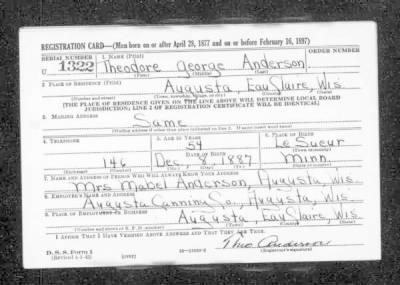 REGISTRATION CARD—(Men born on or after April 29, 1877 and on or before February 16, 1897)
SERIAL NUMBER 1. NAME (Print) ORDER NUMBER
U 1322 Theodore George Anderson
(First) (Middle) (Last)
2. PLACE OF RESIDENCE (Print)
Augusta, Eau Claire, Wis
(Number and street) (Town, township, village, or city) (County) (State)
[THE PLACE OF RESIDENCE GIVEN ON THE LINE ABOVE WILL DETERMINE LOCAL BOARD
JURISDICTION; LINE 2 OF REGISTRATION CERTIFICATE WILL BE IDENTICAL]
3. MAILING ADDRESS
Same
[Mailing address if other than place indicated on line 2. If same insert word same]
4. TELEPHONE 5. AGE IN YEARS 6. PLACE OF BIRTH
54 Le Sueur
DATE OF BIRTH (Town or county)
146 Dec. 8, 1887 Minn.
7. NAME AND ADDRESS OF PERSON WHO WILL ALWAYS KNOW YOUR ADDRESS
Mrs Mabel Anderson, Augusta, Wis.
8. EMPLOYER'S NAME AND ADDRESS
Augusta Canning Co., Augusta, Wis.
9. PLACE OF EMPLOYMENT OR BUSINESS
Augusta, Eau Claire, Wis
(Number and street or R. F. D. number) (Town) (County) (State)
I AFFIRM THAT I HAVE VERIFIED ABOVE ANSWERS AND THAT THEY ARE TRUE.
Theo Anderson
D. S. S. Form 1
(Revised 4-1-42) (over) (Registrant's signature)